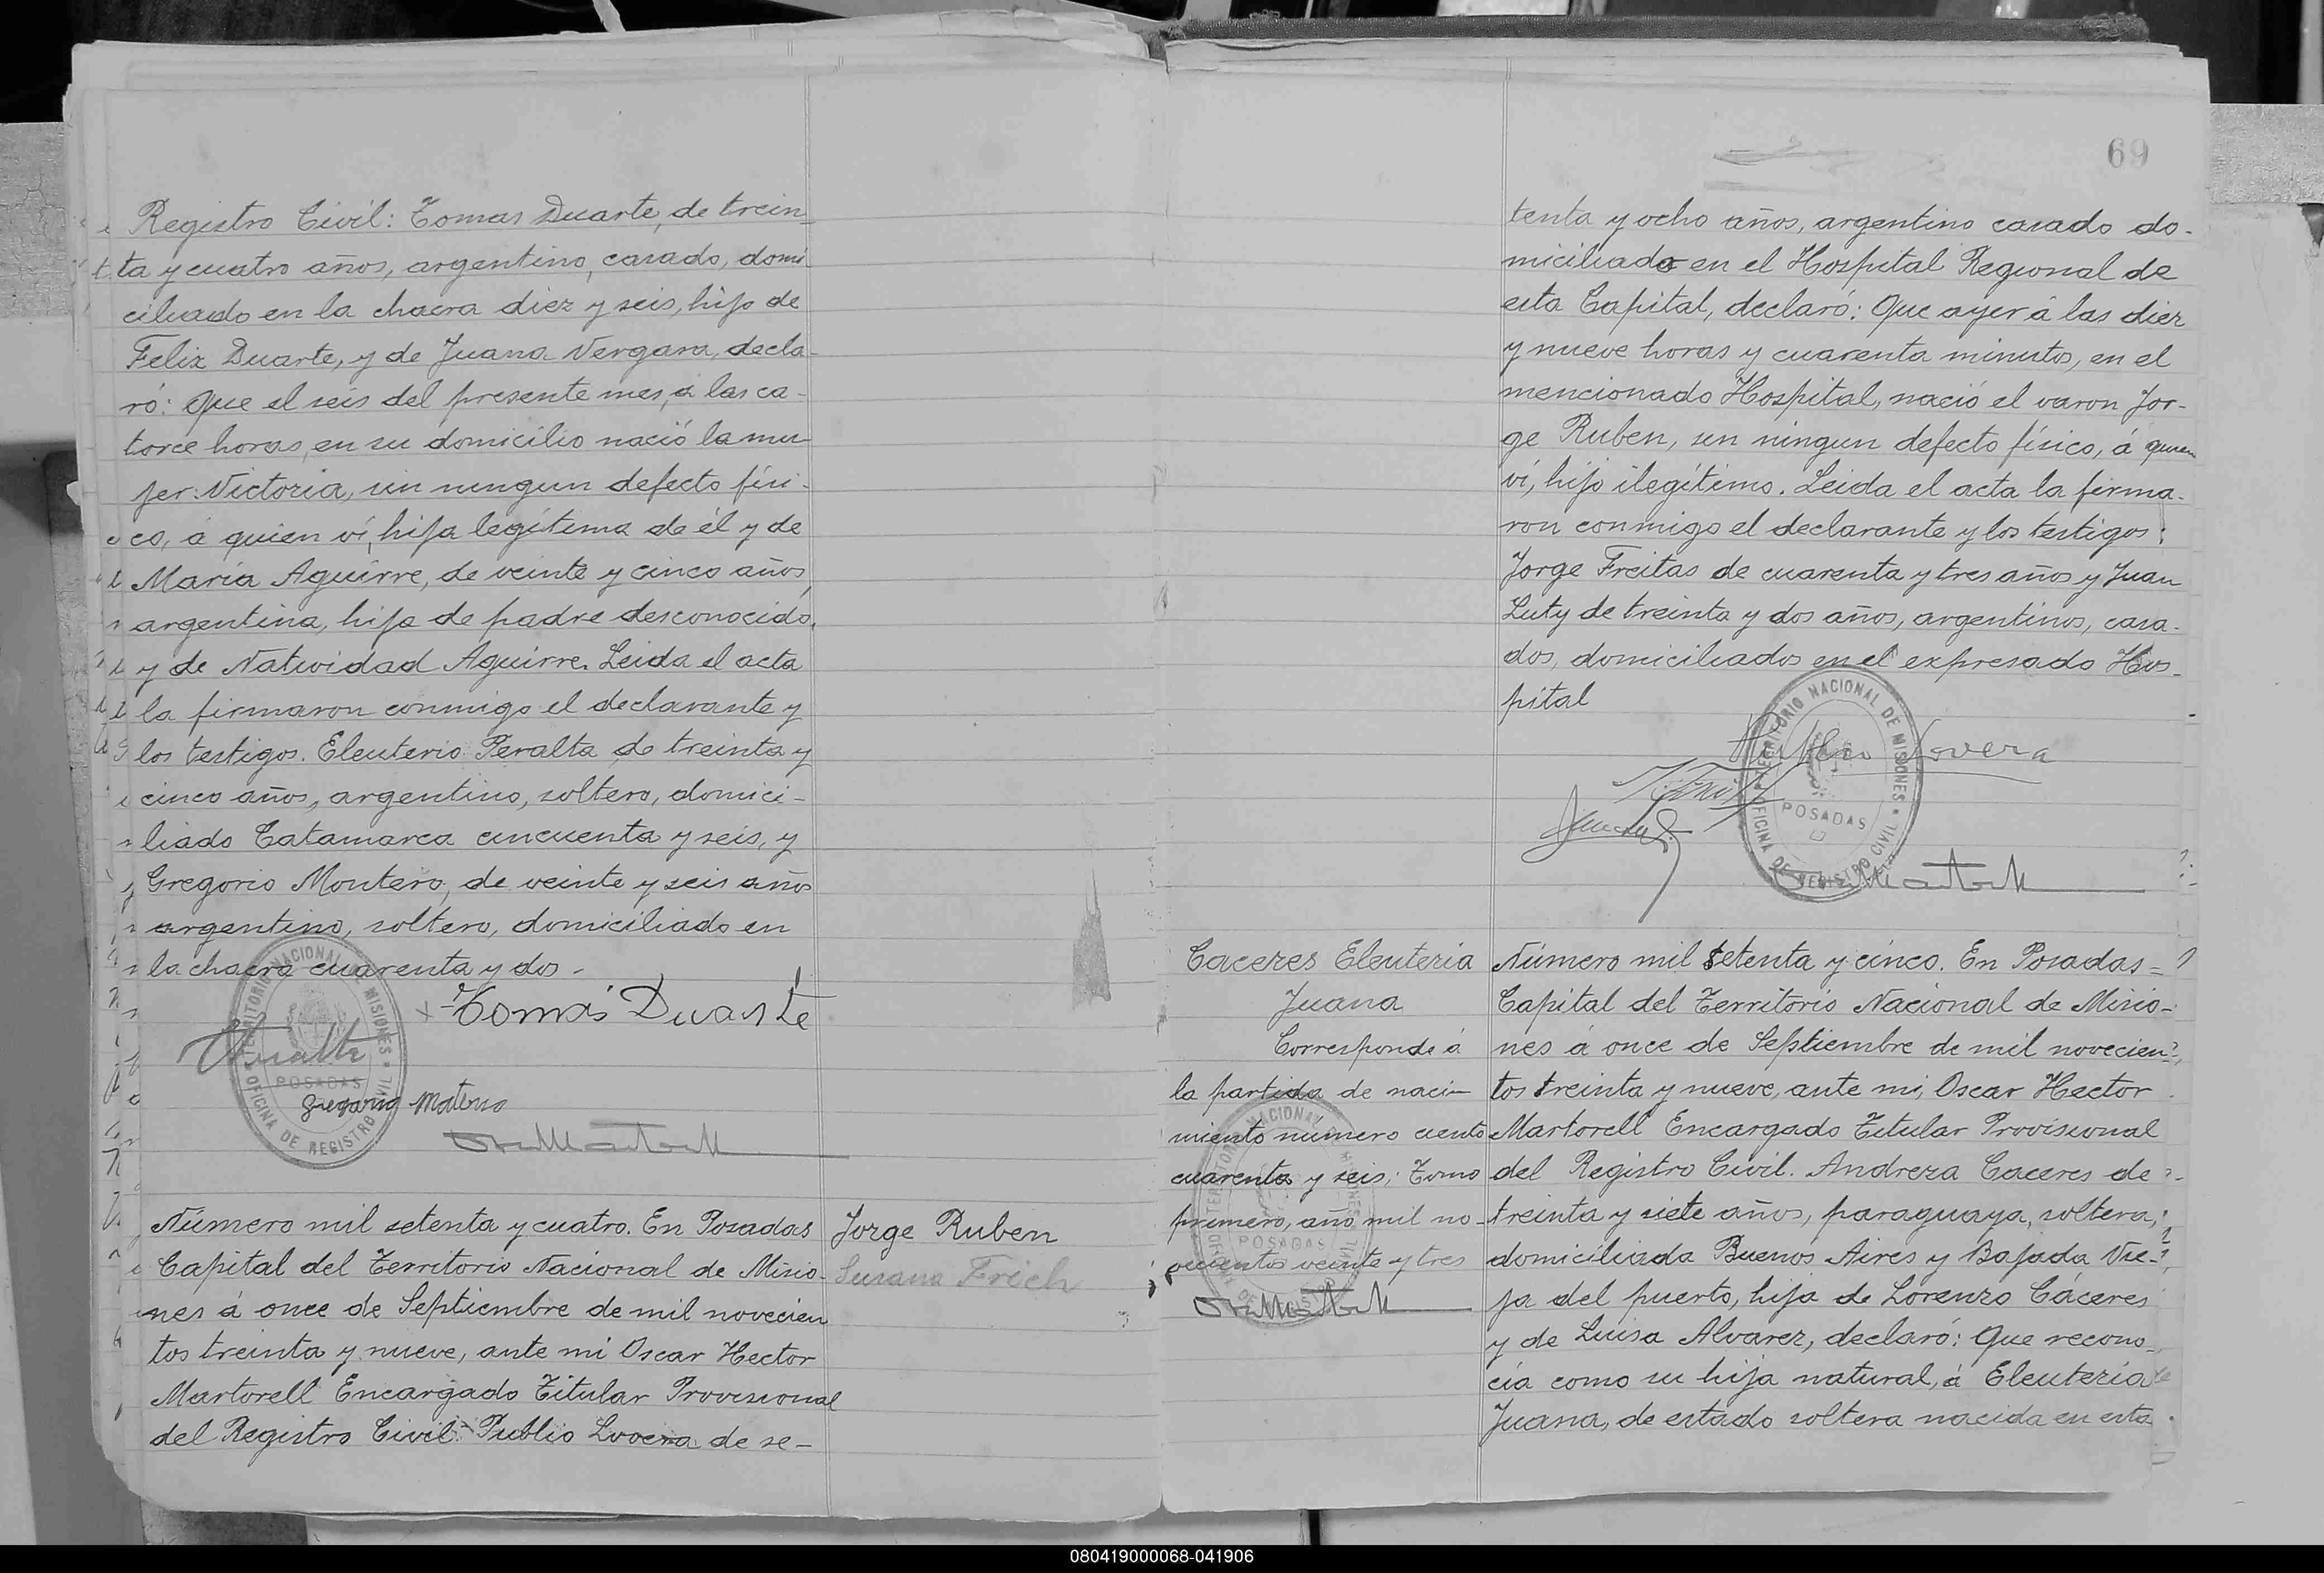 Registro Civil: Tomas Duarte, de trein-
ta y cuatro años, argentino, casado, domi-
ciliado en la chacra diez y seis, hijo de
Felix Duarte, y de Juana Vergara, decla-
ró: Que el seis del presente mes, á las ca-
torce horas, en su domicilio nació la mu-
jer: Victoria, sin ningun defecto fisi-
co, á quien ví, hija legítima de él y de
María Aguirre, de veinte y cinco años,
argentina, hija de padre desconocido,
y de Natividad Aguirre. Leida el acta
la firmaron conmigo el declarante y
los testigos. Eleuterio Peralta de treinta y
cinco años, argentino, soltero, domici-
liado Catamarca cincuenta y seis, y
Gregorio Montero, de veinte y seis años
argentino, soltero, domiciliado en
la chacra cuarenta y dos -
x Tomás Duarte
TERRITORIO NACIONAL DE MISIONES
POSADAS
OFICINA DE REGISTRO CIVIL
Número mil setenta y cuatro. En Posadas
Capital del Territorio Nacional de Misio-
nes á once de Septiembre de mil novecien
tos treinta y nueve, ante mi Oscar Hector
Martorell Encargado Titular Provisional
del Registro Civil - Publio Lovera de se-
Jorge Ruben
Susana Frich
69
tenta y ocho años, argentino casado do-
miciliado en el Hospital Regional de
esta Capital, declaró: Que ayer á las diez
y nueve horas y cuarenta minutos, en el
mencionado Hospital, nació el varon Jor-
ge Ruben, sin ningun defecto físico, á quien
ví, hijo ilegítimo. Leida el acta la firma-
ron conmigo el declarante y los testigos:
Jorge Freitas de cuarenta y tres años y Juan
Luty de treinta y dos años, argentinos, casa-
dos, domiciliados en el expresado Hos-
pital
Publio Lovera
TERRITORIO NACIONAL DE MISIONES
POSADAS
OFICINA DE REGISTRO CIVIL
Caceres Eleuteria
Juana
Corresponde á
la partida de naci-
miento número ciento
cuarenta y seis; Tomo
primero, año mil no-
vecientos veinte y tres
POSADAS
Número mil setenta y cinco. En Posadas =
Capital del Territorio Nacional de Misio-
nes á once de Septiembre de mil novecien-
tos treinta y nueve, ante mi, Oscar Hector
Martorell Encargado Titular Provisional
del Registro Civil. Andreza Caceres de
treinta y siete años, paraguaya, soltera,
domiciliada Buenos Aires y Bajada Vie-
ja del puerto, hija de Lorenzo Cáceres
y de Luisa Alvarez, declaró: Que recono-
cía como su hija natural, á Eleuteria
Juana, de estado soltera nacida en esta
080419000068-041906